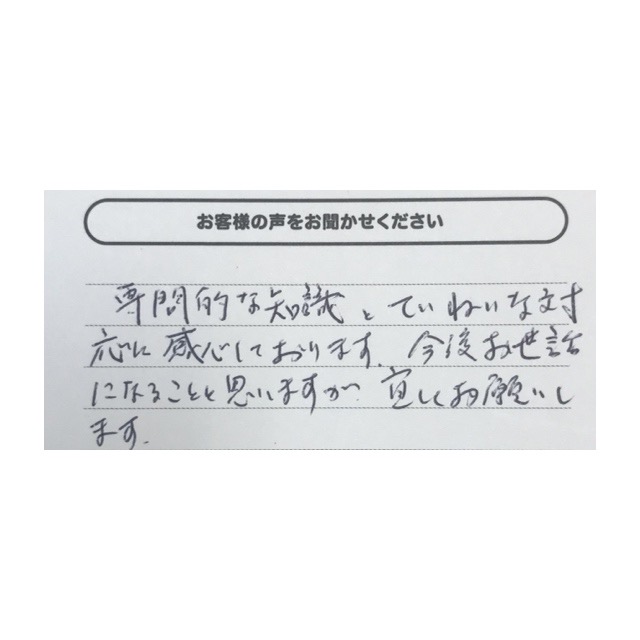 お客様の声をお聞かせください
専問的な知識とていねいな対
応に感心しております。今後お世話
になることと思いますが、宜しくお願いし
ます。